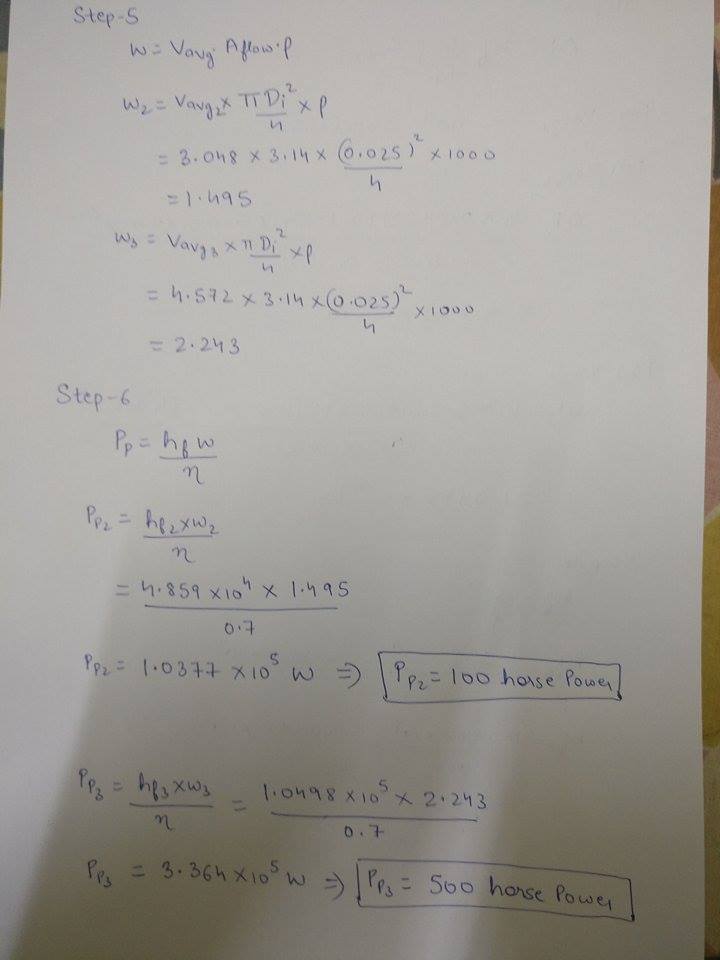 Step-5
w = Vavg. Aflow.ρ
w₂ = Vavg₂ × πDi²/4 × ρ
= 3.048 × 3.14 × (0.025)²/4 × 1000
= 1.495
w₃ = Vavg₃ × πDi²/4 × ρ
= 4.572 × 3.14 × (0.025)²/4 × 1000
= 2.243
Step-6
Pp = hf w/η
Pp₂ = hf₂×w₂/η
= 4.859 × 10⁴ × 1.495/0.7
Pp₂ = 1.0377 × 10⁵ W ⇒ Pp₂ = 100 horse Power
Pp₃ = hf₃×w₃/η = 1.0498 × 10⁵ × 2.243/0.7
Pp₃ = 3.364 × 10⁵ W ⇒ Pp₃ = 500 horse Power